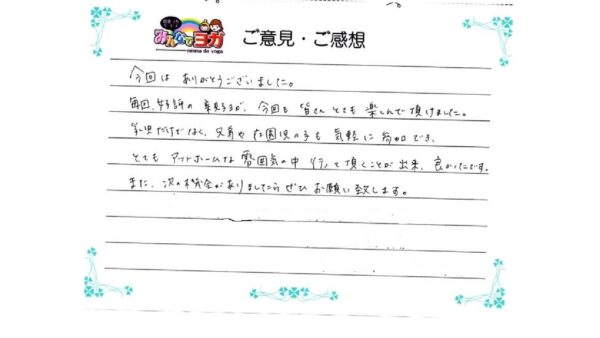 みんなでヨガ
minna de yoga
ご意見・ご感想
今回は ありがとうございました。
毎回、好評の親子ヨガ、今回も皆さんとても楽しんで頂けました。
乳児だけでなく、父兄や在園児の子も気軽に参加でき、
とてもアットホームな雰囲気の中行って頂くことが出来、良かったです。
また、次の機会がありましたらぜひお願い致します。